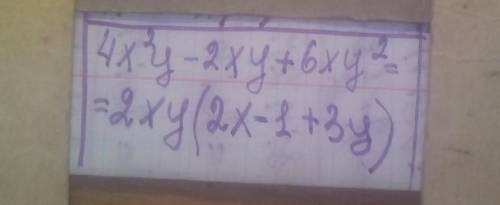 4x²y - 2xy + 6xy² =
= 2xy(2x - 1 + 3y)